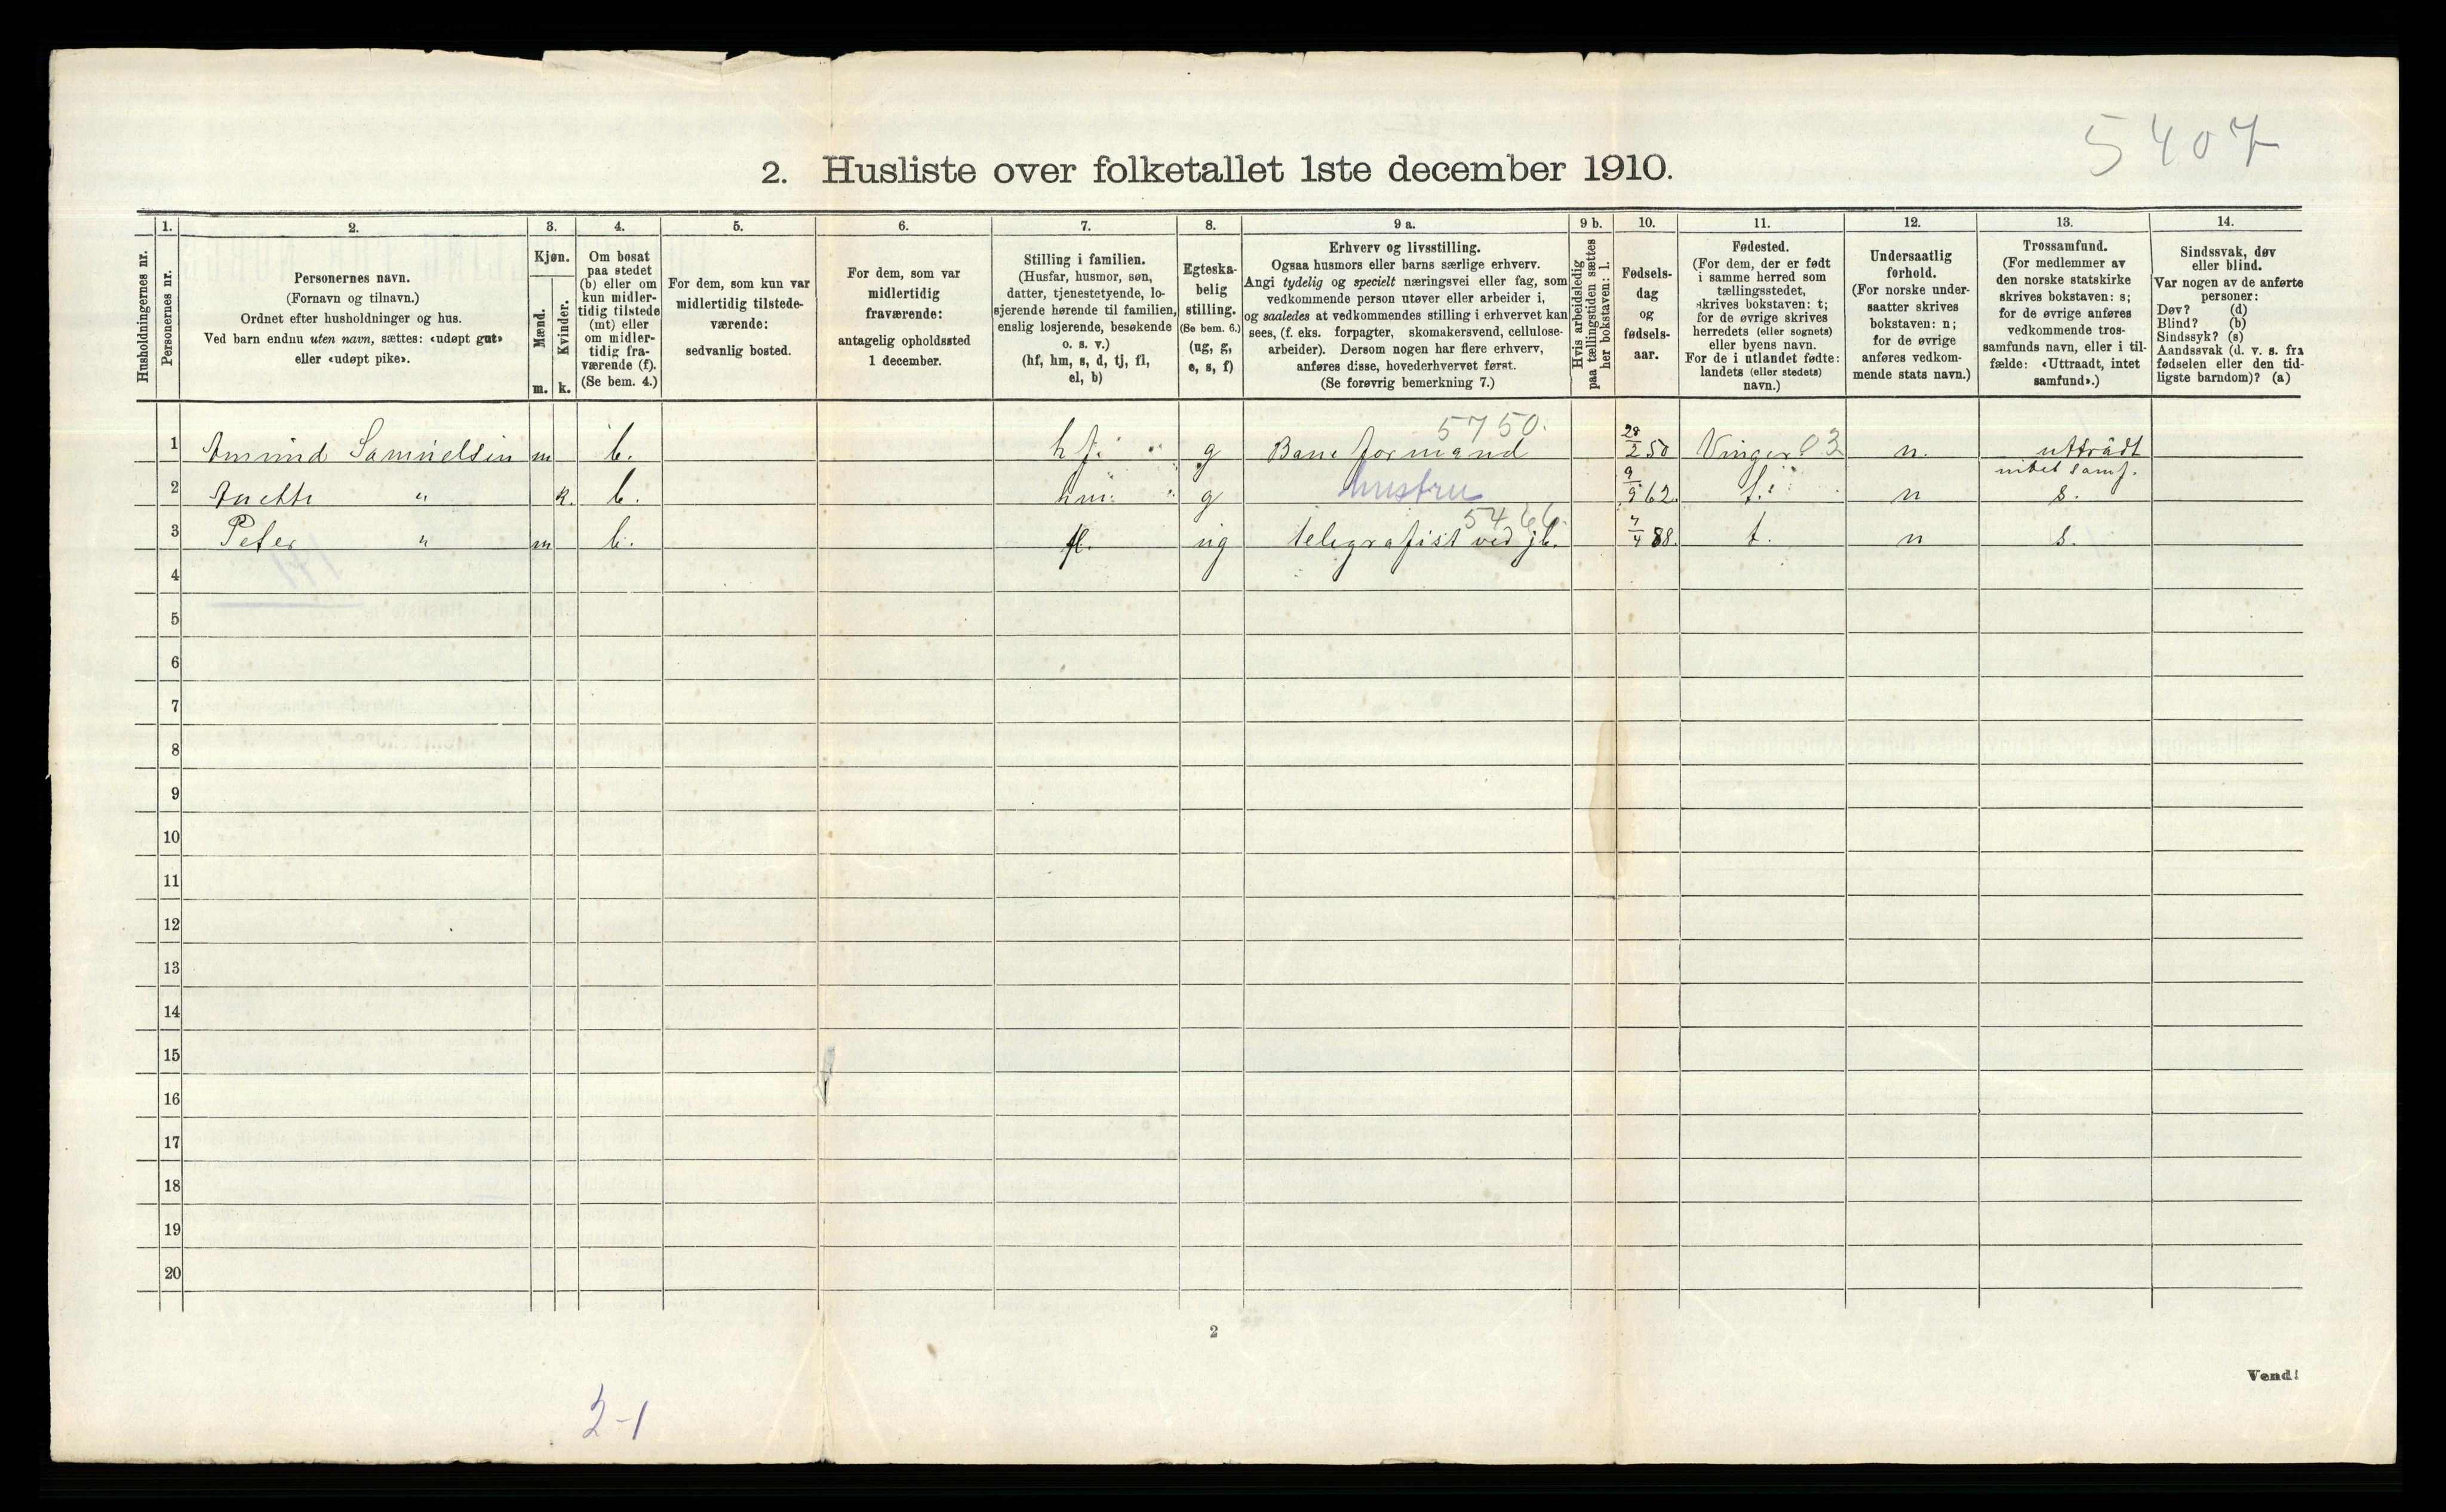 5407
2. Husliste over folketallet 1ste december 1910.
Husholdningernes nr.
1.
Personernes nr.
2.
Personernes navn.
(Fornavn og tilnavn.)
Ordnet efter husholdninger og hus.
Ved barn endnu uten navn, sættes: «udøpt gut»
eller «udøpt pike».
3.
Kjøn.
Mænd.
Kvinder.
m. k.
4.
Om bosat
paa stedet
(b) eller om
kun midler-
tidig tilstede
(mt) eller
om midler-
tidig fra-
værende (f).
(Se bem. 4.)
5.
For dem, som kun var
midlertidig tilstede-
værende:
sedvanlig bosted.
6.
For dem, som var
midlertidig
fraværende:
antagelig opholdssted
1 december.
7.
Stilling i familien.
(Husfar, husmor, søn,
datter, tjenestetyende, lo-
sjerende hørende til familien,
enslig losjerende, besøkende
o. s. v.)
(hf, hm, s, d, tj, fl,
el, b)
8.
Egteska-
belig
stilling.
(Se bem. 6.)
(ug, g,
e, s, f)
9 a.
Erhverv og livsstilling.
Ogsaa husmors eller barns særlige erhverv.
Angi tydelig og specielt næringsvei eller fag, som
vedkommende person utøver eller arbeider i,
og saaledes at vedkommendes stilling i erhvervet kan
sees, (f. eks. forpagter, skomakersvend, cellulose-
arbeider). Dersom nogen har flere erhverv,
anføres disse, hovederhvervet først.
(Se forøvrig bemerkning 7.)
9 b.
Hvis arbeidsledig
paa tællingstiden sættes
her bokstaven: l.
10.
Fødsels-
dag
og
fødsels-
aar.
11.
Fødested.
(For dem, der er født
i samme herred som
tællingsstedet,
skrives bokstaven: t;
for de øvrige skrives
herredets (eller sognets)
eller byens navn.
For de i utlandet fødte:
landets (eller stedets)
navn.)
12.
Undersaatlig
forhold.
(For norske under-
saatter skrives
bokstaven: n;
for de øvrige
anføres vedkom-
mende stats navn.)
13.
Trossamfund.
(For medlemmer av
den norske statskirke
skrives bokstaven: s;
for de øvrige anføres
vedkommende tros-
samfunds navn, eller i til-
fælde: «Uttraadt, intet
samfund».)
14.
Sindssvak, døv
eller blind.
Var nogen av de anførte
personer:
Døv? (d)
Blind? (b)
Sindssyk? (s)
Aandssvak (d. v. s. fra
fødselen eller den tid-
ligste barndom)? (a)
5750.
1 Amund Samuelsen m b. hf. g Baneformand 28/2 50 Vinger 03 n. uttrådt
intet samf.
2 Anette " k. b. hm. g hustru 9/9 62. t. n s.
5466.
3 Peter " m b. fl. ug telegrafist ved jb. 7/4 88. t. n s.
4
5
6
7
8
9
10
11
12
13
14
15
16
17
18
19
20
2
Vend!
2-1